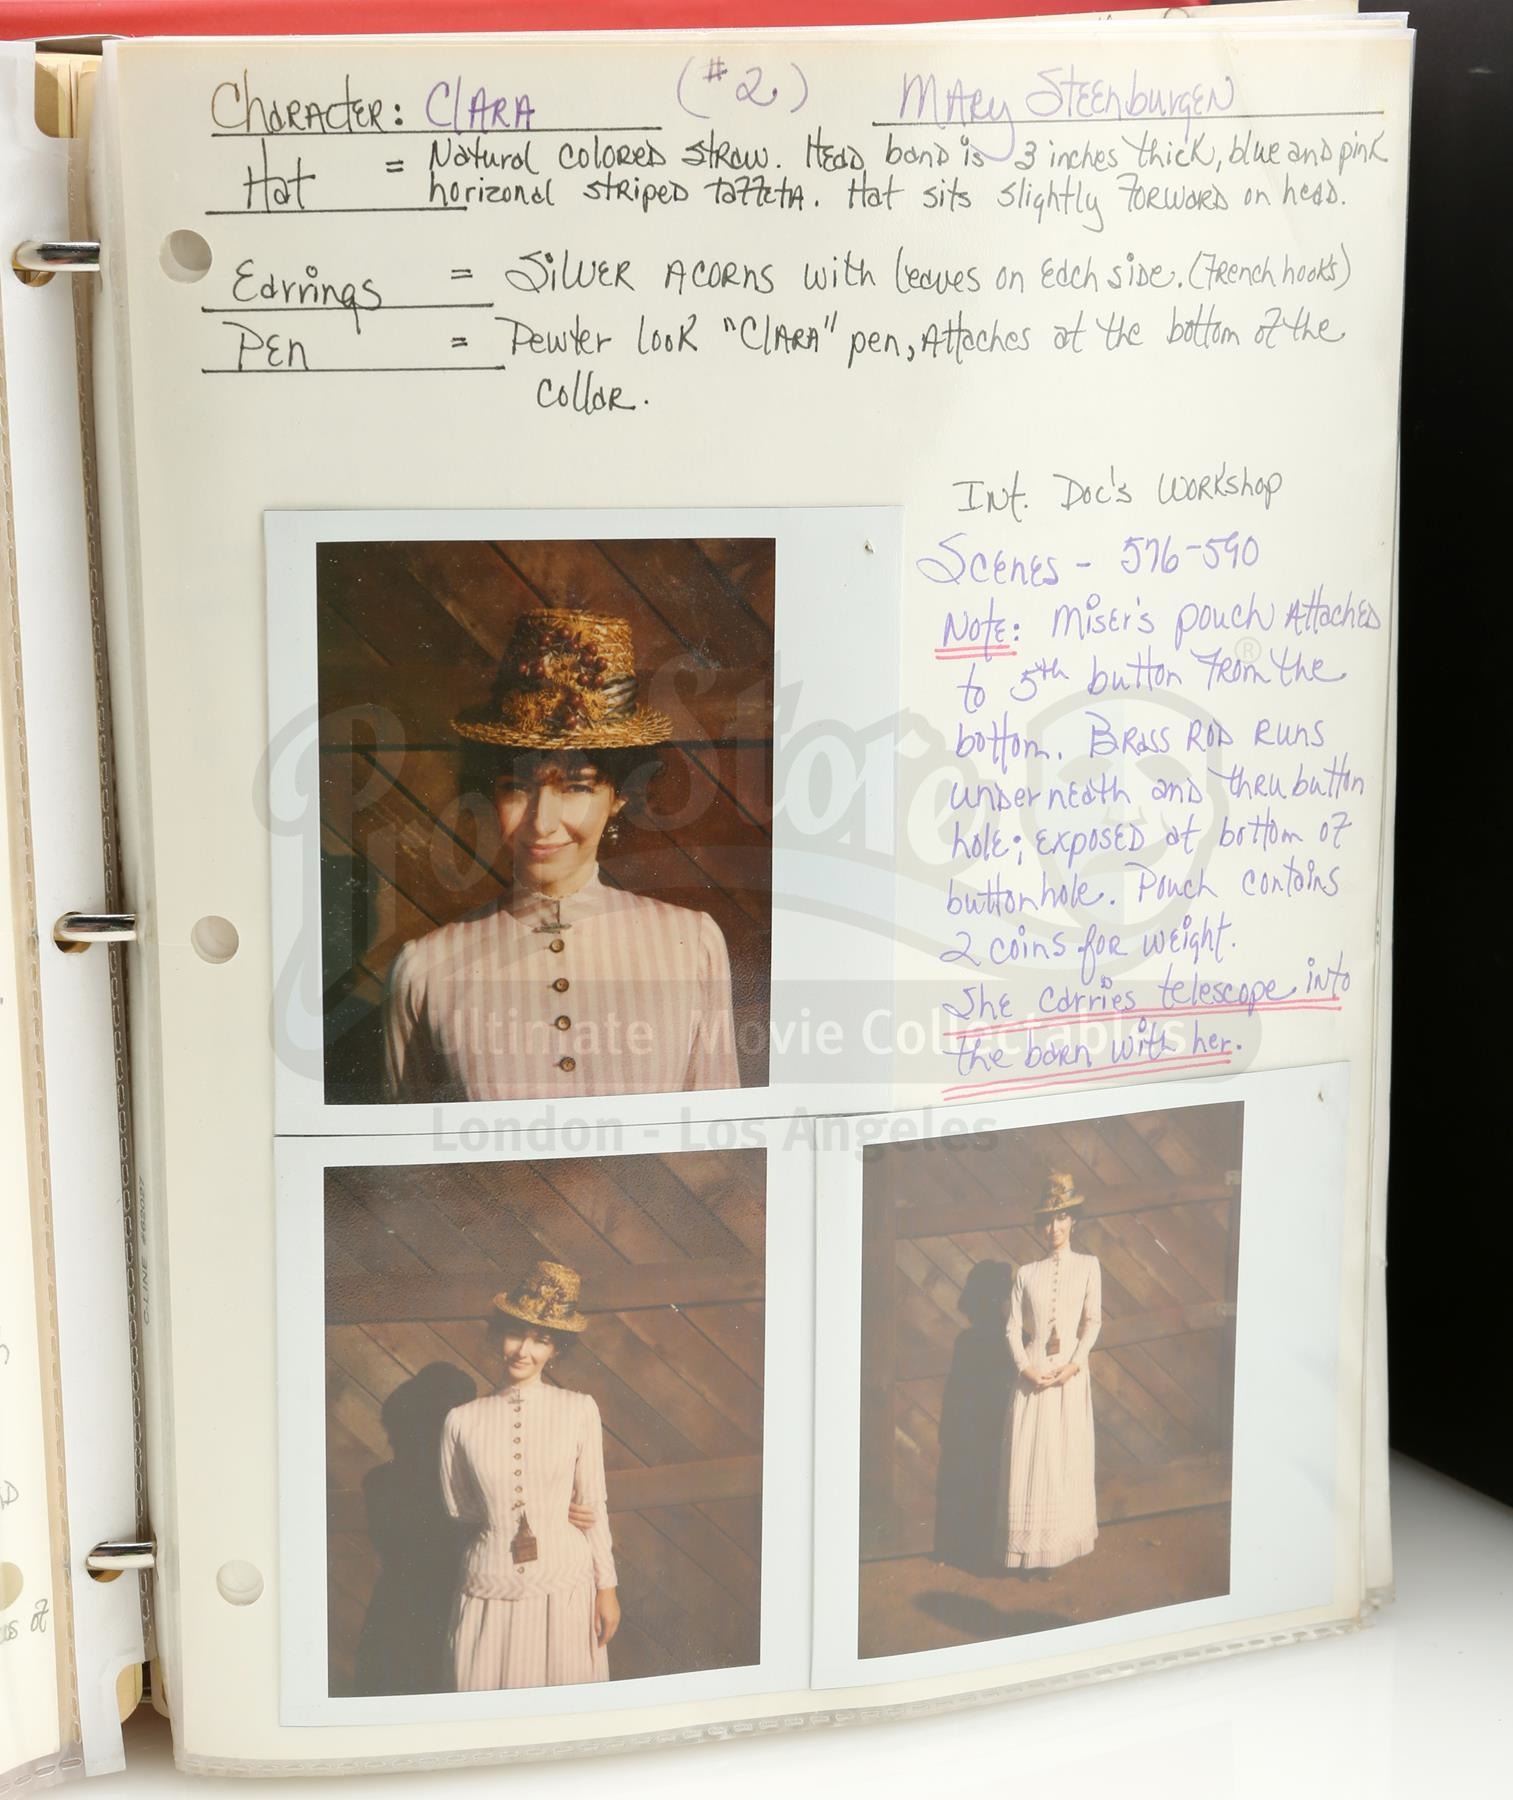 Character: Clara (#2) Mary Steenburgen
Hat = Natural colored straw. Head band is 3 inches thick, blue and pink
horizonal striped taffeta. Hat sits slightly forward on head.
Earrings = Silver acorns with leaves on each side. (French hooks)
Pen = Pewter look "Clara" pen, Attaches at the bottom of the
collar.
Int. Doc's Workshop
Scenes - 576-590
Note: Miser's pouch Attached
to 5th button from the
bottom. Brass rod runs
underneath and thru button
hole; exposed at bottom of
buttonhole. Pouch contains
2 coins for weight.
She carries telescope into
the barn with her.
Prop Store ®
Ultimate Movie Collectables
London - Los Angeles
C-LINE #62027
of